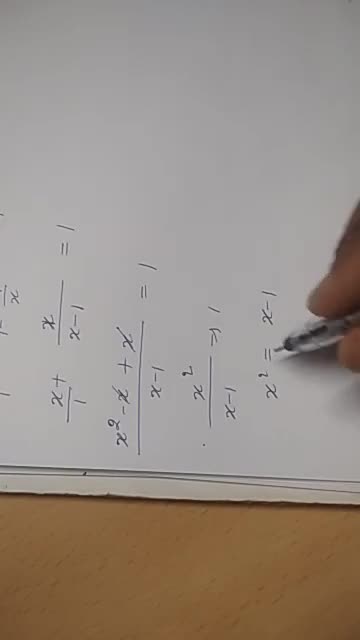 1 - 1/x
x/1 + x/(x-1) = 1
(x² - x + x)/(x-1) = 1
x²/(x-1) = 1
x² = x-1